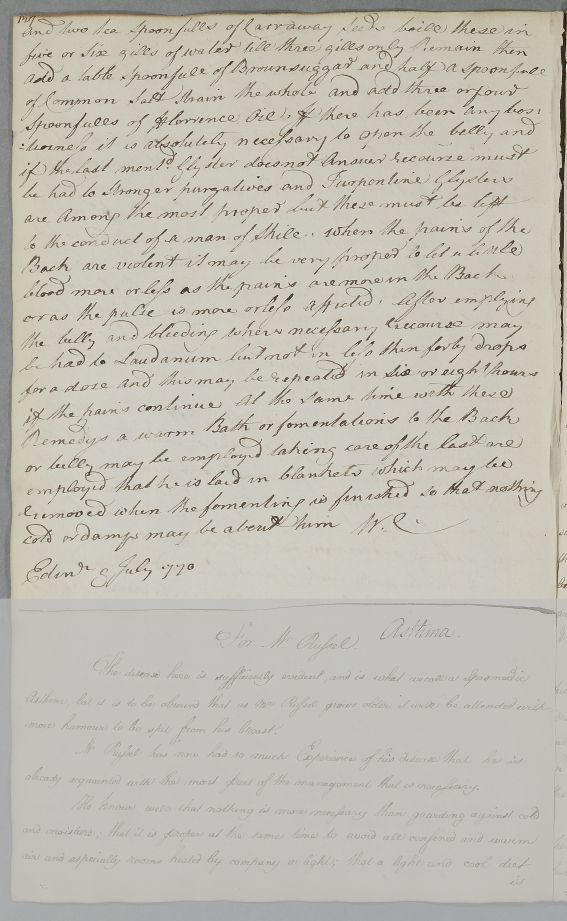 and two tea spoonfulls of Carraway Seeds boile these in
five or six gills of water till three gills only Remain then
add a table Spoonfule of Brown suggar and half a spoonfule
of Common Salt Strain the whole and add three or four
Spoonfulls of Florrence Oil. If there has been any Cos:
:tiveness it is absolutely necessary to open the belly and
if the last mentd. Glyster does not Answer recourse must
be had to Stronger purgatives and Turpentine Glysters
are Among the most proper but these must be left
to the conduct of a man of Skile. When the pains of the
Back are violent it may be very proper to let a little
blood more or less as the pains are more in the Back
or as the pulse is more or less affected. After emptying
the belly and bleeding where necessary recourse may
be had to Laudanum but not in less then forty drops
for a dose and this may be repeated in six or eight hours
if the pains continue At the same time with these
Remedys a warm Bath or fomentations to the Back
or belly may be employed taking care if the last are
employed that he is laid in blankets which may be
removed when the fomenting is finished so that nothing
cold or damp may be about him W. C.
Edinr. 9 July 1770
For Mr Russel. Asthma.
The disease here is sufficiently evident, and is what we call a Spasmodic
Asthma, but it is to be observed that as Mr Russel grows older it will be attended with
more humour to be spit from his breast.
Mr Russel has now had so much Experience of his disease that he is
already acquainted with the most part of the management that is necessary.
He knows well that nothing is more necessary than guarding against cold
and moisture; that it is proper at the same time to avoid all confined and warm
air and especially rooms heated by company or light; that a light and cool diet
is